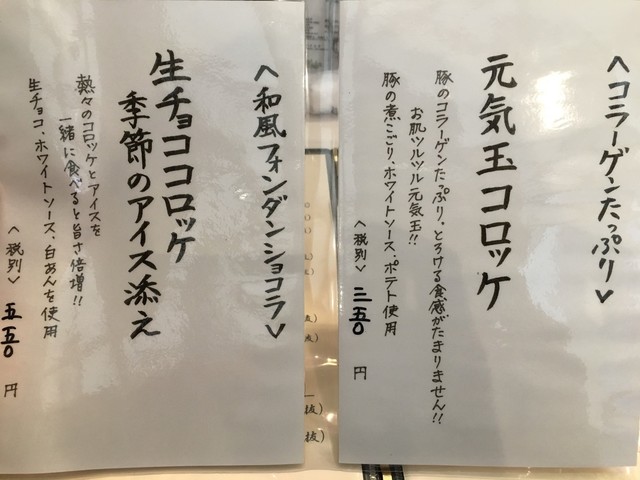 ＜コラーゲンたっぷり＞
元気玉コロッケ
豚のコラーゲンたっぷり、とろける食感がたまりません!!
お肌ツルツル元気玉!!
豚の煮こごり、ホワイトソース、ポテト使用
＜税別＞ 三五〇 円
＜和風フォンダンショコラ＞
生チョココロッケ
季節のアイス添え
熱々のコロッケとアイスを
一緒に食べると旨さ倍増!!
生チョコ、ホワイトソース、白あんを使用
＜税別＞ 五五〇 円
抜)
抜)